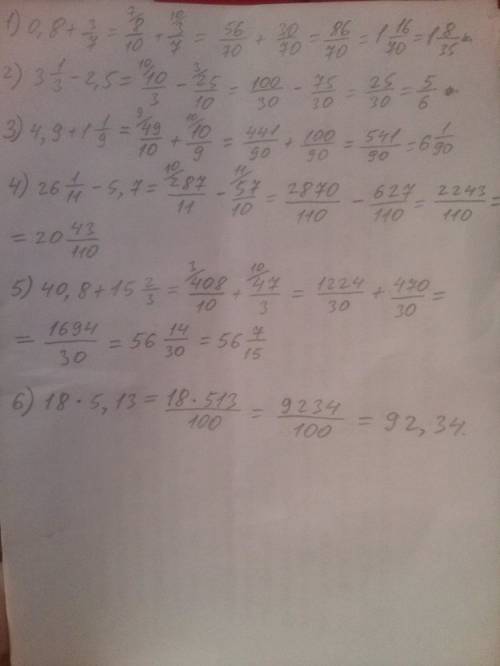 1) 0,8 + 3/7 = ⁷⁄8/10 + ¹⁰⁄3/7 = 56/70 + 30/70 = 86/70 = 1 16/70 = 1 8/35
2) 3 1/3 - 2,5 = ¹⁰⁄10/3 - ³⁄25/10 = 100/30 - 75/30 = 25/30 = 5/6
3) 4,9 + 1 1/9 = ⁹⁄49/10 + ¹⁰⁄10/9 = 441/90 + 100/90 = 541/90 = 6 1/90
4) 26 1/11 - 5,7 = ¹⁰⁄287/11 - ¹¹⁄57/10 = 2870/110 - 627/110 = 2243/110 =
= 20 43/110
5) 40,8 + 15 2/3 = ³⁄408/10 + ¹⁰⁄47/3 = 1224/30 + 470/30 =
= 1694/30 = 56 14/30 = 56 7/15
6) 18 · 5,13 = 18 · 513/100 = 9234/100 = 92,34.